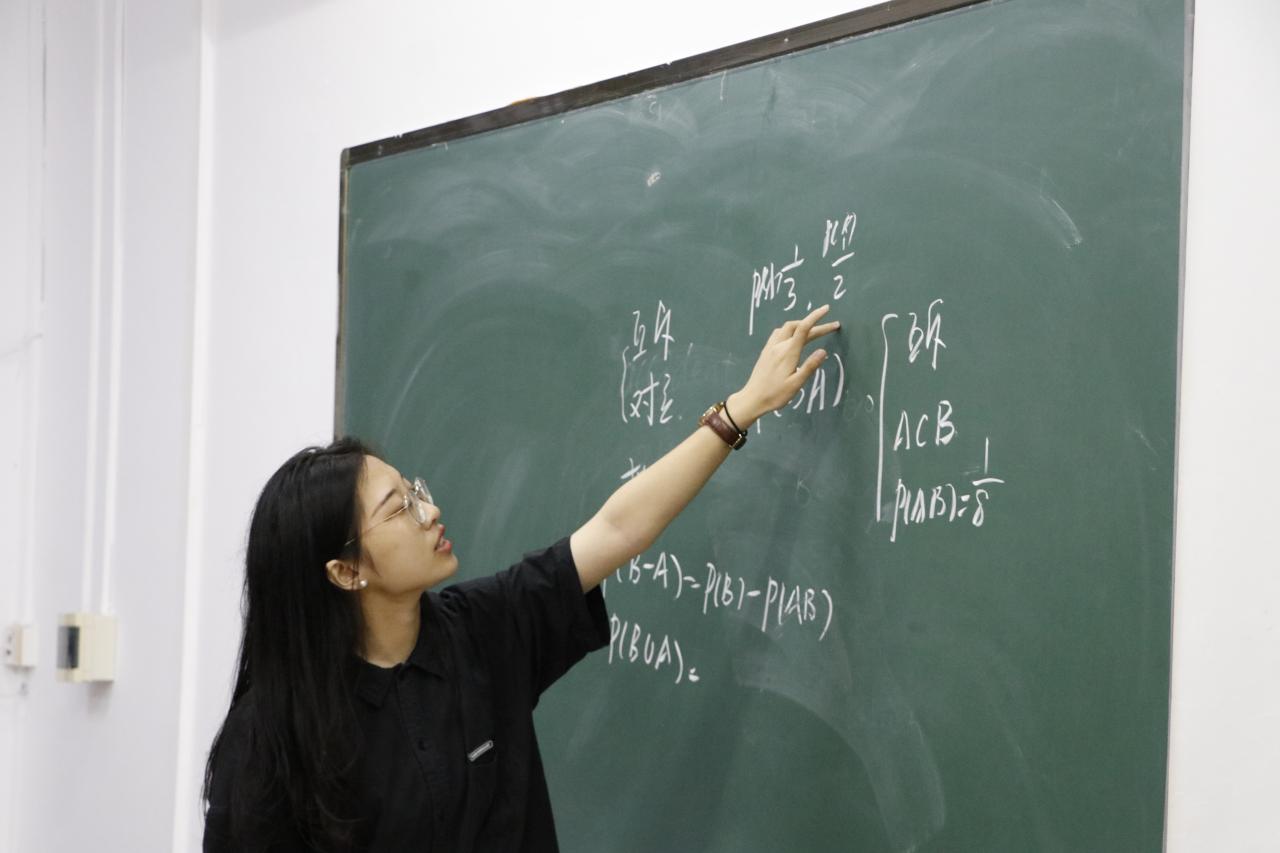 P(A)=1/3, P(B)=1/2
互斥
对立
A)
互斥
A⊂B
P(AB)=1/8
(B-A)=P(B)-P(AB)
P(B∪A)=